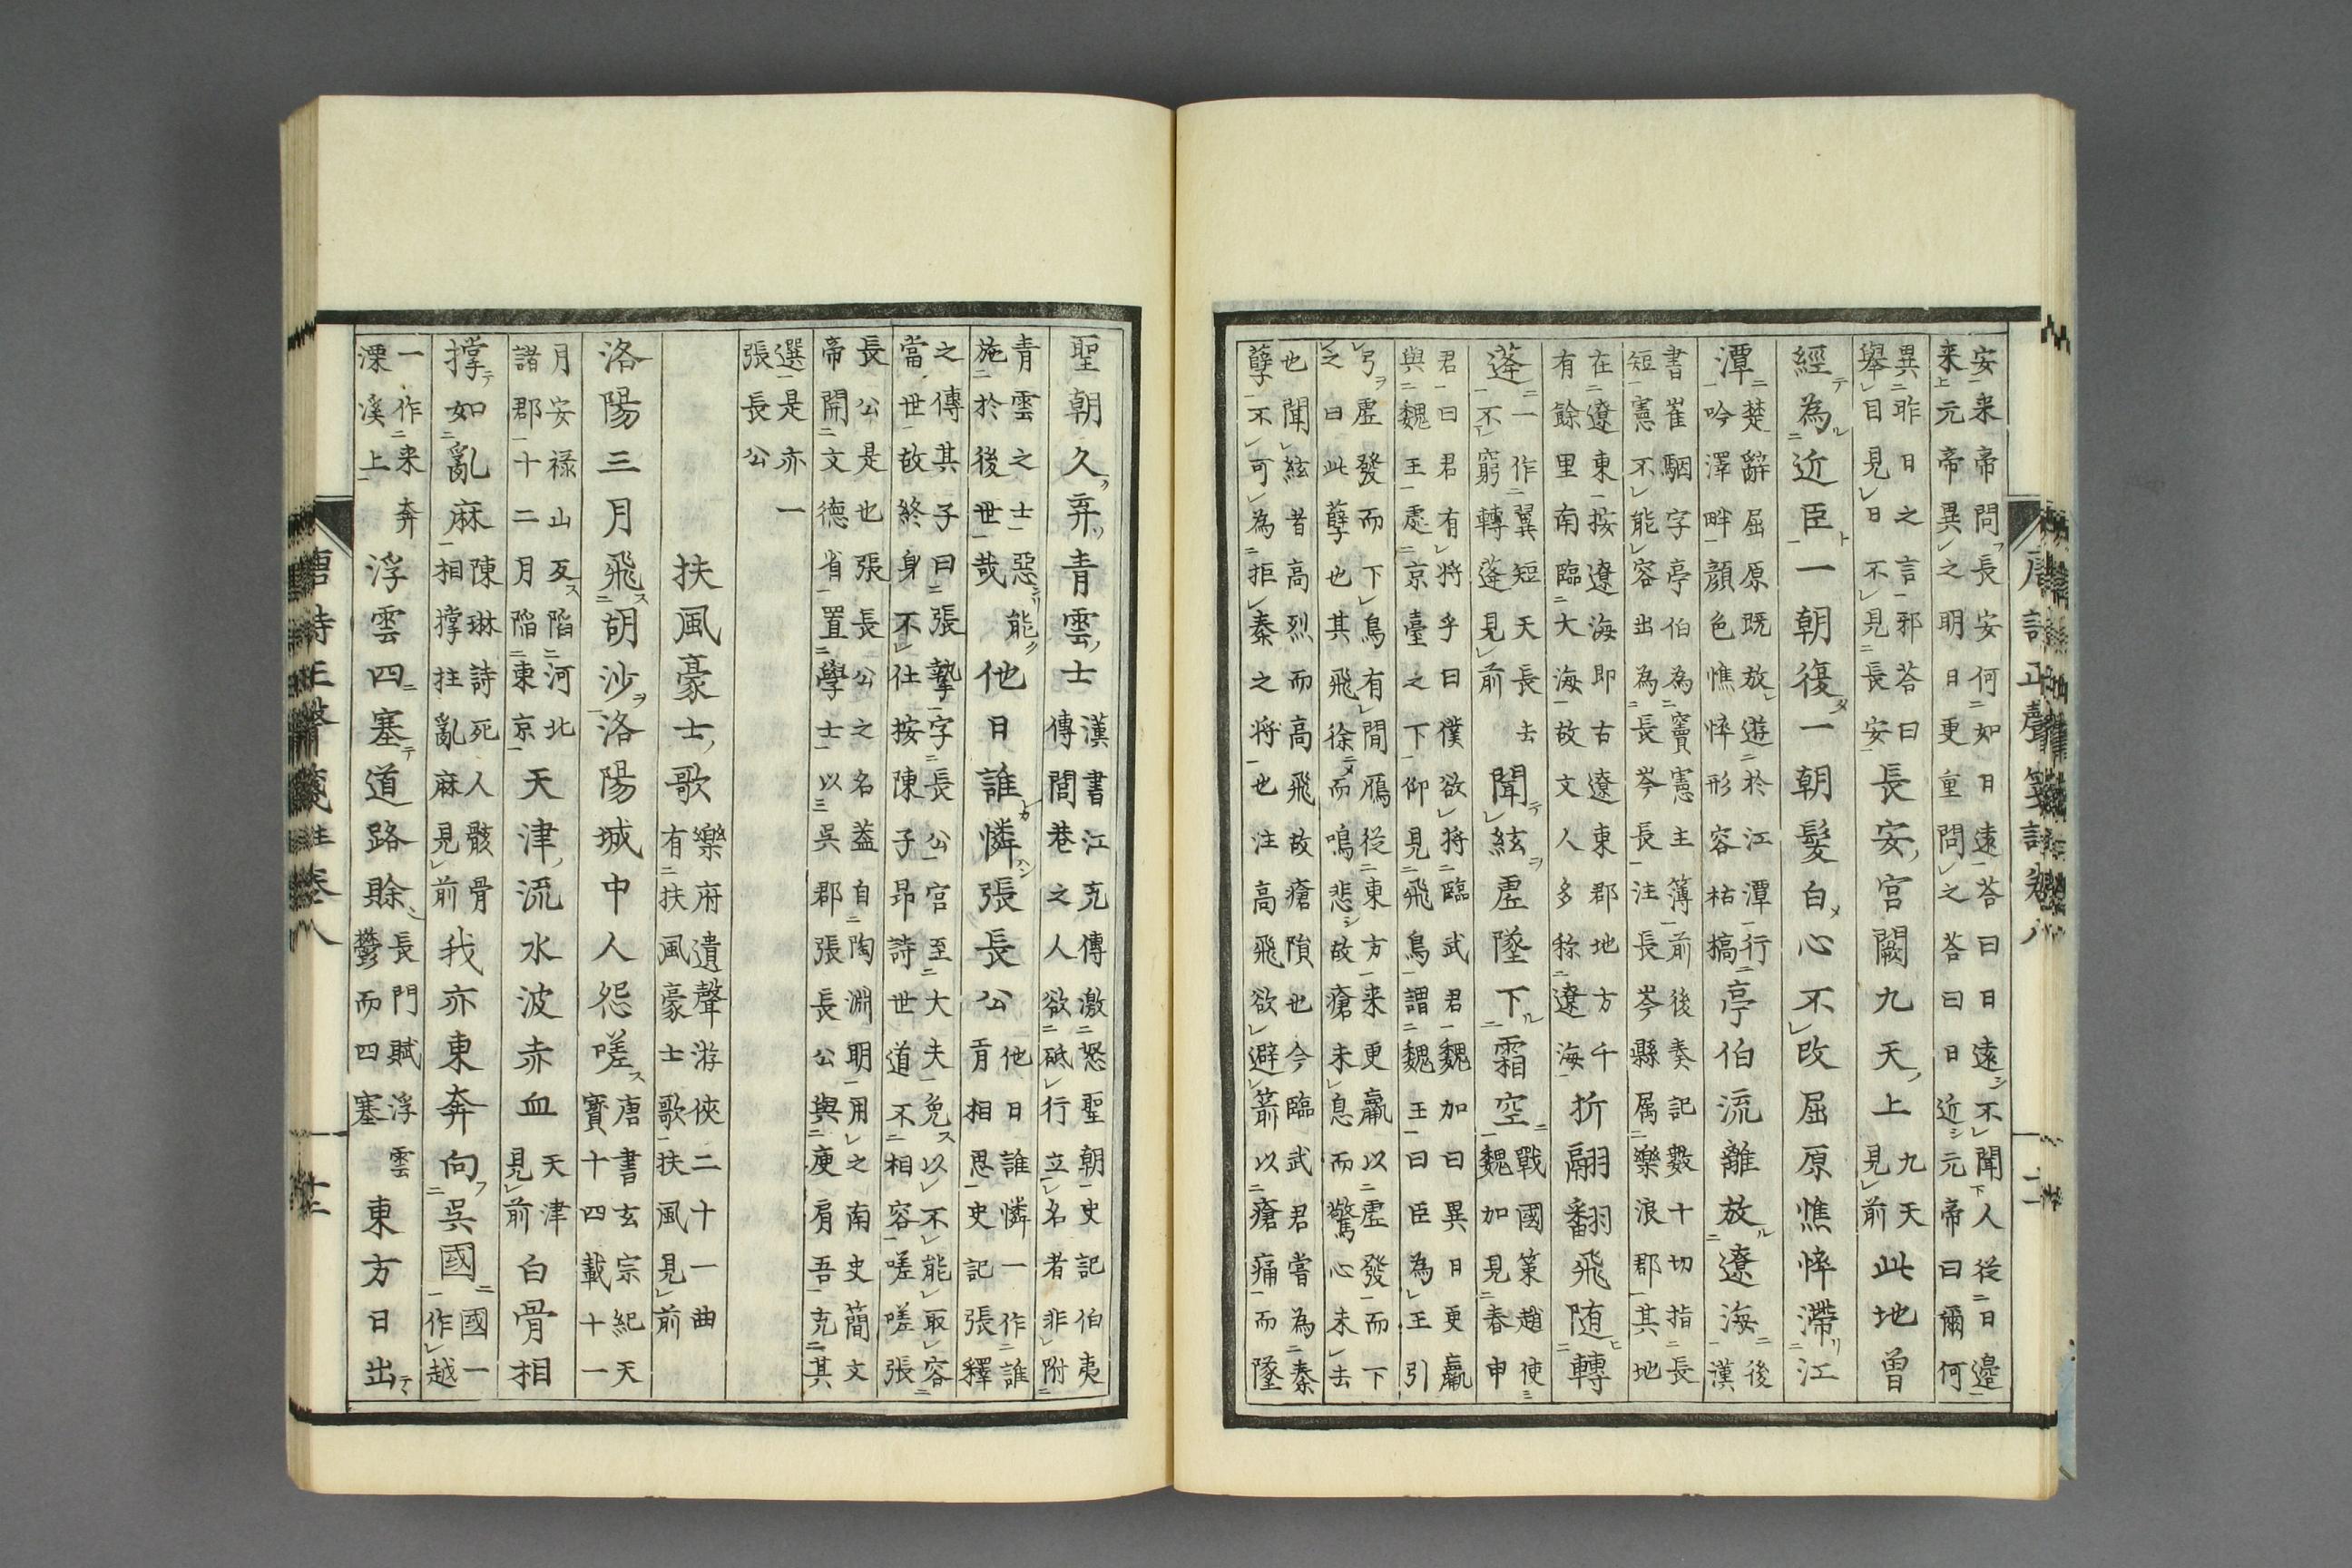 安来帝問長安何如日遠荅曰日遠不聞人從日邉
来元帝異之明日更重問之荅曰日近元帝曰爾何
異昨日之言邪荅曰舉目見日不見長安長安宮闕九天上九天見前此地曽
經為近臣一朝復一朝髮白心不改屈原憔悴滯江
潭楚辭屈原既放遊於江潭行吟澤畔顔色憔悴形容枯槁亭伯流離放遼海後漢
書崔駰字亭伯為竇憲主簿前後奏記數十切指長
短憲不能容出為長岑長注長岑縣属樂浪郡其地
在遼東按遼海即古遼東郡地方千有餘里南臨大海故文人多称遼海折翮翻飛随轉
蓬一作翼短天長去不窮轉蓬見前聞絃虚墜下霜空戰國策趙使魏加見春申
君曰君有将乎曰僕欲将臨武君魏加曰異日更羸
與魏王處京臺之下仰見飛鳥謂魏王曰臣為王引
弓虚發而下鳥有間鴈從東方来更羸以虚發而下
之曰此孽也其飛徐而鳴悲故瘡未息而驚心未去
也聞絃者高烈而高飛故瘡隕也今臨武君嘗為秦
孽不可為拒秦之将也注高飛欲避箭以瘡痛而墜
聖朝久弃青雲士漢書江充傳激怒聖朝史記伯夷傳閭巷之人欲砥行立名者非附
青雲之士惡能施於後世哉他日誰憐張長公他日誰憐一作誰肯相思史記張釋
之傳其子曰張摯字長公官至大夫免以不能取容
當世故終身不仕按陳子昂詩世道不相容嗟嗟張
長公是也張長公之名蓋自陶淵明用之南史簡文
帝開文德省置學士以呉郡張長公與庾肩吾充其
選是亦一張長公
扶風豪士歌樂府遺聲游俠二十一曲有扶風豪士歌扶風見前
洛陽三月飛胡沙洛陽城中人怨嗟唐書玄宗紀天寳十四載十一
月安禄山反陷河北諸郡十二月陷東京天津流水波赤血天津見前白骨相
撐如亂麻陳琳詩死人骸骨相撐拄亂麻見前我亦東奔向呉國國一作越
一作来奔溧溪上浮雲四塞道路賒長門賦浮雲鬱而四塞東方日出
唐詩正聲箋註巻八